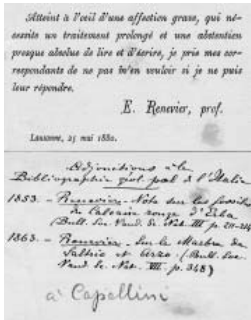 Atteint à l'œil d'une affection grave, qui né-
cessite un traitement prolongé et une abstention
presque absolue de lire et d'écrire, je prie mes cor-
respondants de ne pas m'en vouloir si je ne puis
leur répondre.
E. Renevier, prof.
Lausanne, 25 mai 1880.
Adjonctions à la
Bibliographie géol. pal. de l'Italie
1853. – Renevier – Note sur les fossiles
du Calcaire rouge d'Erba
(Bull. Soc. Vaud. Sc. Nat. III p. 211-214
1863. – Renevier – Sur le Marbre de
Saltrio et Arzo. (Bull. Soc.
Vaud. Sc. Nat. VII. p. 348)
à Capellini